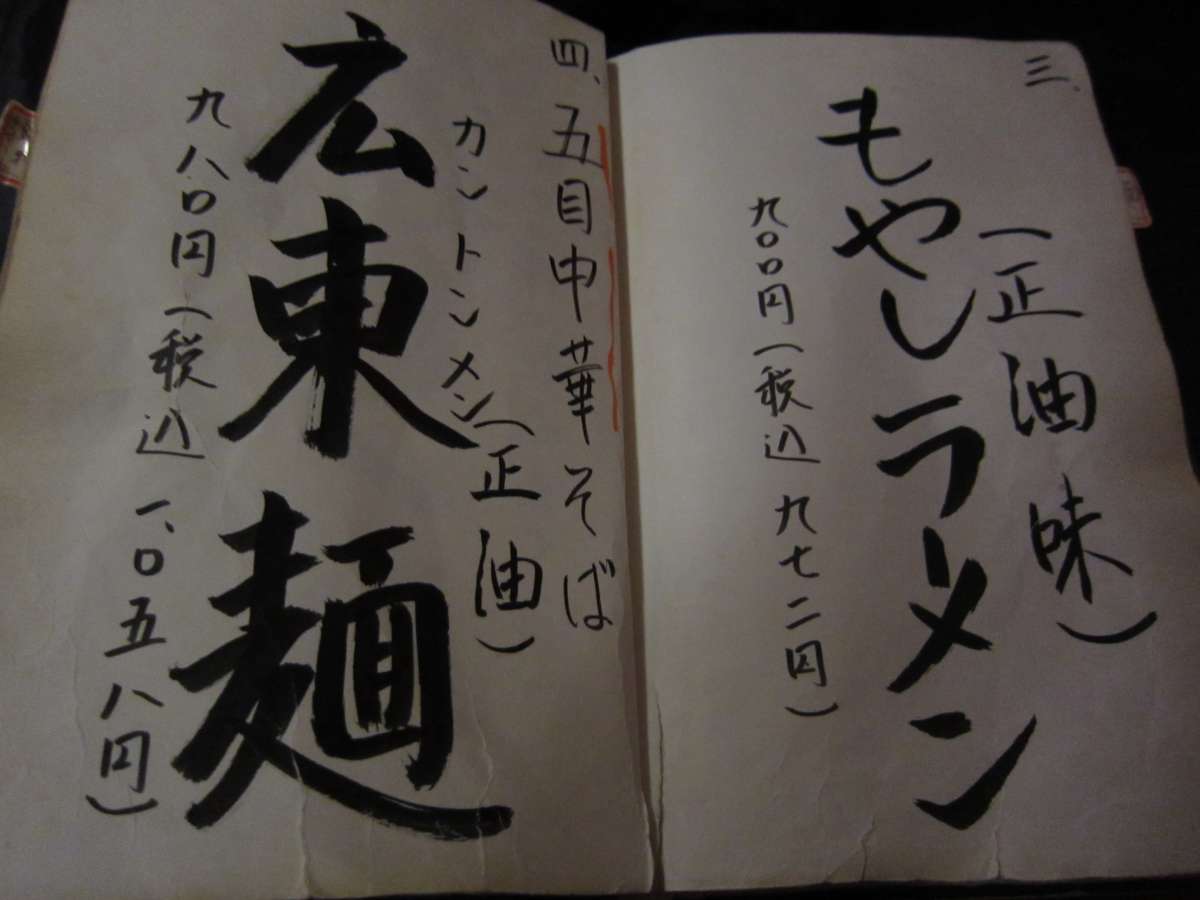 三、
(正油味)
もやしラーメン
九〇〇円(税込 九七二円)
四、五目中華そば
カントンメン(正油)
広東麺
九八〇円(税込 一、〇五八円)